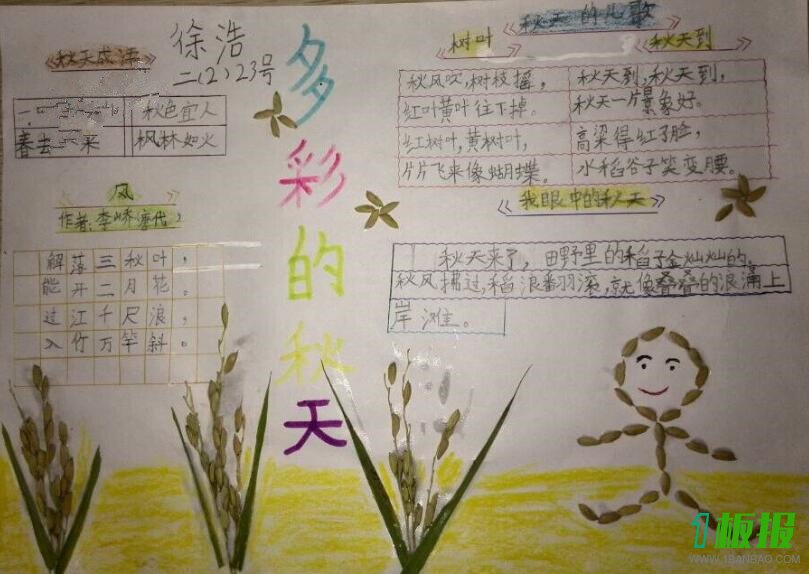 多彩的秋天
徐浩
二(2)23号
《秋天成语》
秋色宜人
春去 来 枫林如火
《风》
作者:李峤(唐代)
解落三秋叶,
能开二月花。
过江千尺浪,
入竹万竿斜。
《秋天的儿歌》
《树叶》
秋风吹,树枝摇,
红叶黄叶往下掉。
红树叶,黄树叶,
片片飞来像蝴蝶。
《秋天到》
秋天到,秋天到,
秋天一片景象好。
高梁得红了脸,
水稻谷子笑变腰。
《我眼中的秋天》
秋天来了,田野里的稻子金灿灿的。
秋风拂过,稻浪翻滚,就像叠叠的浪涌上
岸滩。
1板报
WWW.1BANBAO.COM